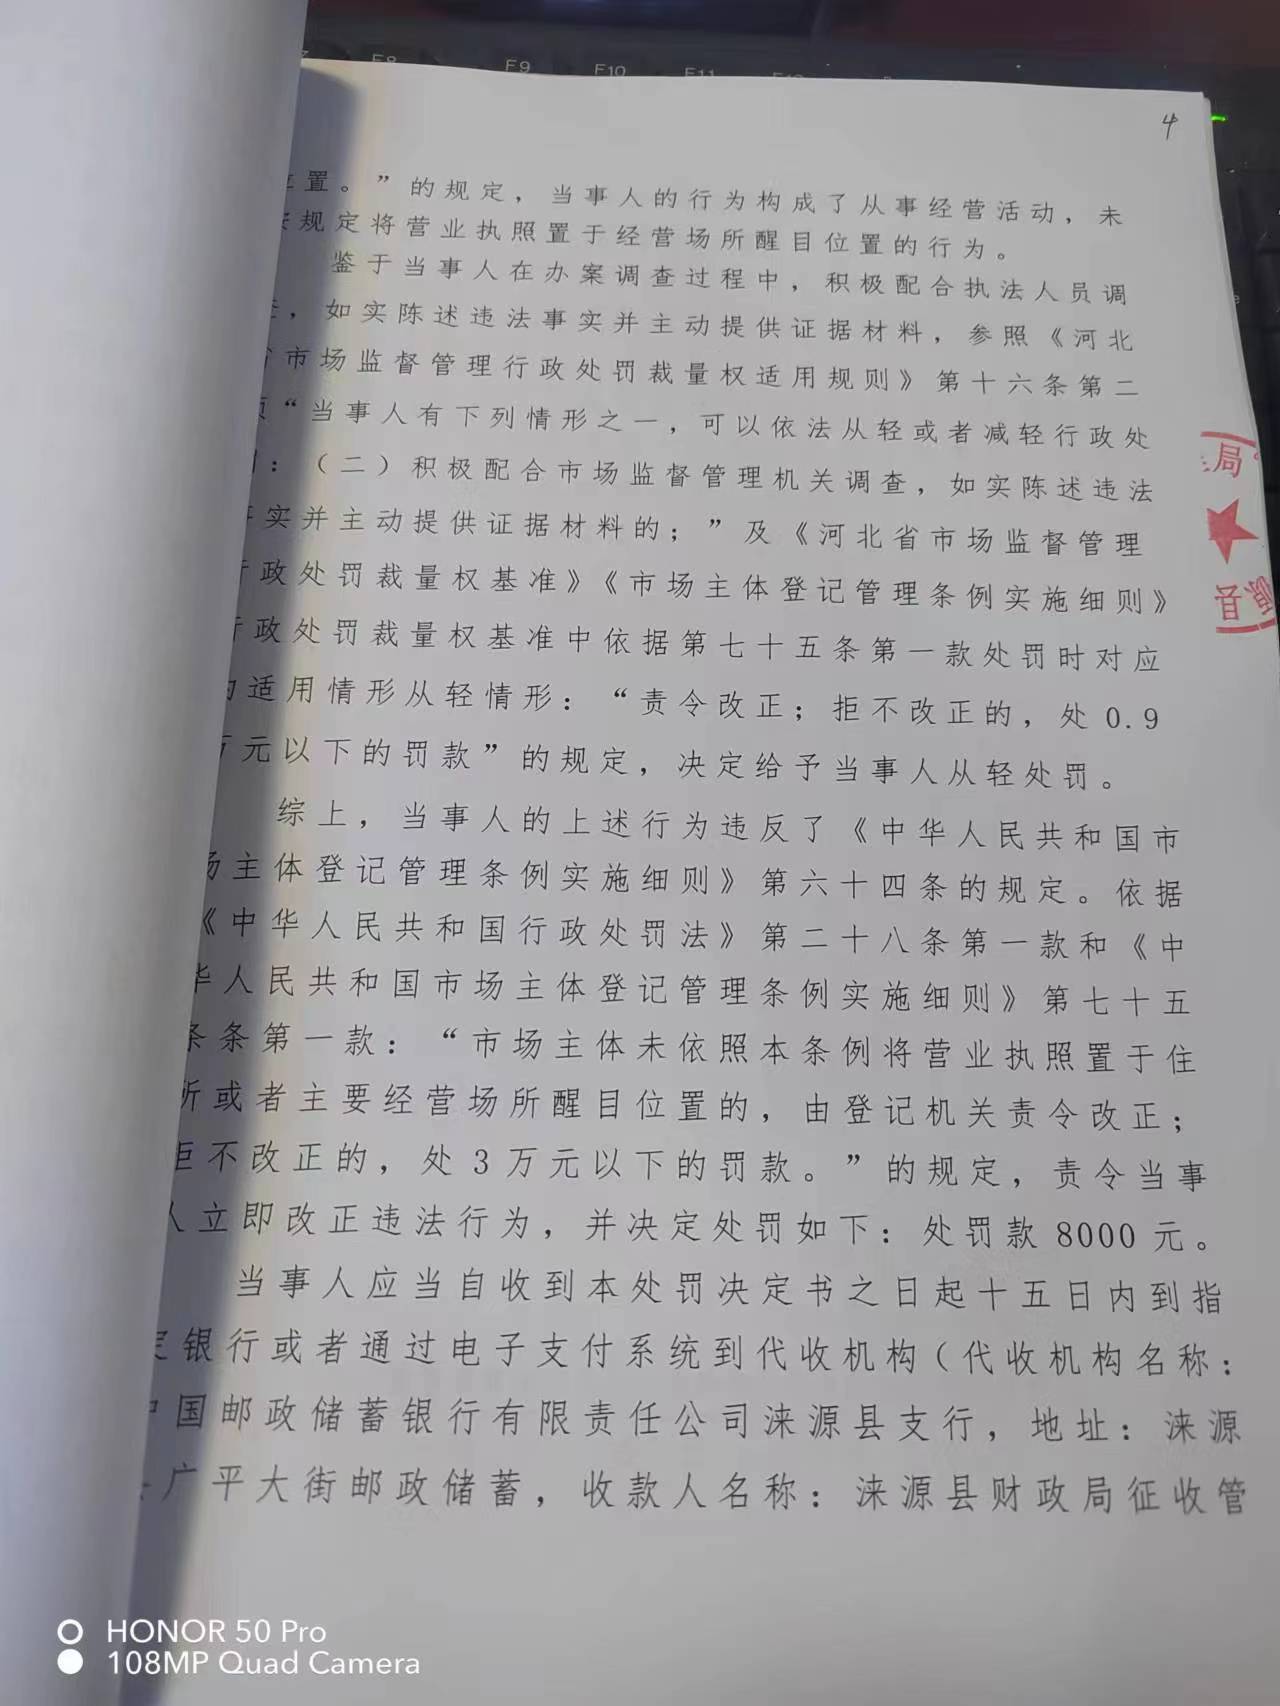 F8 F9 F10 F11 F12
4
置。”的规定，当事人的行为构成了从事经营活动，未
规定将营业执照置于经营场所醒目位置的行为。
鉴于当事人在办案调查过程中，积极配合执法人员调
，如实陈述违法事实并主动提供证据材料，参照《河北
市场监督管理行政处罚裁量权适用规则》第十六条第二
项“当事人有下列情形之一，可以依法从轻或者减轻行政处
：（二）积极配合市场监督管理机关调查，如实陈述违法
实并主动提供证据材料的；”及《河北省市场监督管理
行政处罚裁量权基准》《市场主体登记管理条例实施细则》
行政处罚裁量权基准中依据第七十五条第一款处罚时对应
的适用情形从轻情形：“责令改正；拒不改正的，处0.9
万元以下的罚款”的规定，决定给予当事人从轻处罚。
综上，当事人的上述行为违反了《中华人民共和国市
场主体登记管理条例实施细则》第六十四条的规定。依据
《中华人民共和国行政处罚法》第二十八条第一款和《中
华人民共和国市场主体登记管理条例实施细则》第七十五
条条第一款：“市场主体未依照本条例将营业执照置于住
所或者主要经营场所醒目位置的，由登记机关责令改正；
拒不改正的，处3万元以下的罚款。”的规定，责令当事
人立即改正违法行为，并决定处罚如下：处罚款8000元。
当事人应当自收到本处罚决定书之日起十五日内到指
定银行或者通过电子支付系统到代收机构（代收机构名称：
中国邮政储蓄银行有限责任公司涞源县支行，地址：涞源
广平大街邮政储蓄，收款人名称：涞源县财政局征收管
局
源
HONOR 50 Pro
108MP Quad Camera